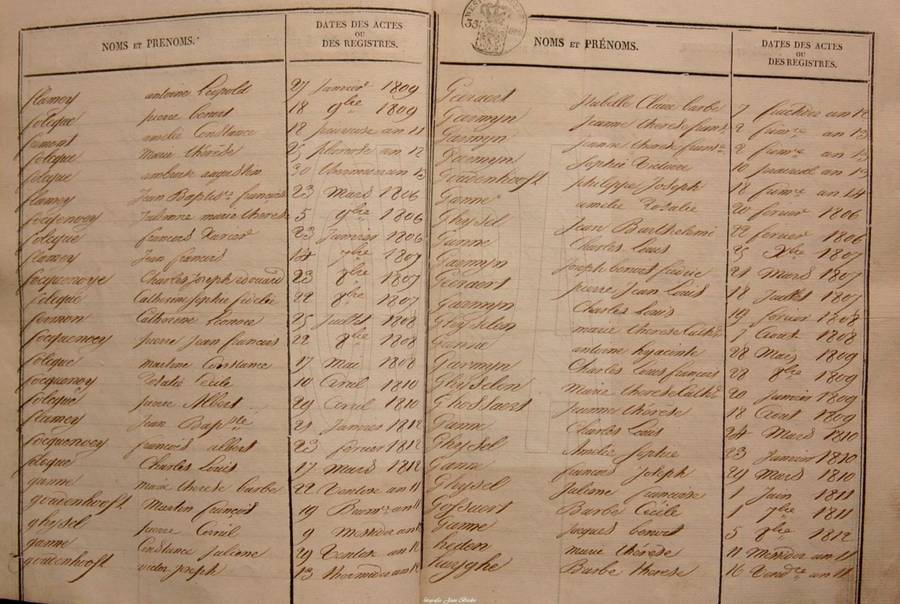 NOMS ET PRÉNOMS.
DATES DES ACTES
OU
DES REGISTRES.
flamey antoine Léopold 27 Janvier 1809
folcque pierre benoit 18 9bre 1809
fumont amelie Constance 12 an 11
folcque Marie thérèse 25 pluviose an 12
folcque ambroise augustin 30 an 13
flamey Jean Baptiste françois 23 Mars 1806
focquenoey Julienne marie therese 5 1806
folcque françois Xavier 23 Janvier 1806
flamey Jean francois 1807
focquenoye Charles Joseph edouard 23 8bre 1807
folcque Catherine Sophie fidele 22 8bre 1807
fermon Catherine Leonore 25 Juillet 1808
focquenoey pierre Jean francois 22 8bre 1808
folcque martine Constance 17 Mai 1808
focquenoey Rosalie Cecile 10 Avril 1810
folcque pierre Albert 29 Avril 1810
flamey Jean Bapte 21 Janvier 1812
focquenoey françois albert 23 fevrier 1812
folcque Charles Louis 17 Mars 1812
ganne marie therese barbe 22 Ventose an 11
goudenhooft Martin françois 19 Brumre an 11
ghysel pierre Cornil 9 Messidor an
ganne Constance Julienne 29 Ventose an 12
goudenhooft victor Joseph 13 thermidor an 12
NOMS ET PRÉNOMS.
DATES DES ACTES
OU
DES REGISTRES.
Geeraert Isabelle Claire barbe 7 fructidor an 12
Garmyn Jeanne therese 2 frimre an 13
Garmyn Jeanne therese 2 frimre an 13
Garmyn Sophie Victoire 10 an 13
Goudenhooft philippe Joseph 18 frimre an 14
Ganne amelie Rosalie 20 fevrier 1806
Ghysel Jean Barthelemi 22 fevrier 1806
Ganne Charles Louis 25 Xbre 1807
Garmyn Joseph benoit 21 Mars 1807
Geeraert pierre Jean Louis 18 Juillet 1807
Garmyn Charles Louis 19 fevrier 1808
Ghyselen marie therese Cathe 1 Aout 1808
Ganne antoine hyacinte 28 Mars 1809
Garmyn Charles Louis françois 28 8bre 1809
Ghyselen Marie therese Cathe 20 Janvier 1809
Ghossaert Jeanne thérèse 18 Aout 1809
Ganne Charles Louis 24 Mars 1810
Ghysel Amelie Sophie 23 Janvier 1810
Ganne francois Joseph 29 Mars 1810
Ghysel Julienne francoise 1 Juin 1811
Gossaert Barbe Cécile 1 7bre 1811
Ganne Jacques benoit 5 8bre 1812
heden marie thérèse 11 Messidor an 11
huyghe Barbe therese 16 Vendre an 11